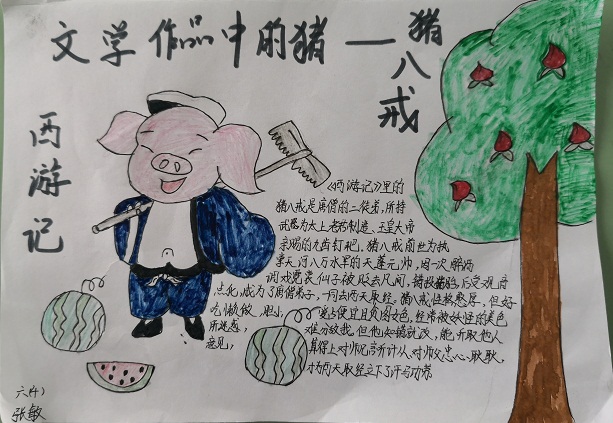 文学作品中的猪——猪八戒
西游记
《西游记》里的
猪八戒是唐僧的二徒弟,所持
武器为太上老君制造、玉皇大帝
亲赐的九齿钉耙。猪八戒前世为执
掌天河八万水军的天蓬元帅,因一次醉酒
调戏霓裳仙子被贬去凡间,错投猪胎,后受观音
点化,成为了唐僧弟子,一同去西天取经。猪八戒性格憨厚,但好
吃懒做,胆小,爱占便宜且贪图女色,经常被妖怪的美色
所迷惑,难分敌我。但他知错就改,能听取他人
意见,算得上对师兄言听计从,对师父忠心耿耿,
为西天取经立下了汗马功劳
六(4)
张敏